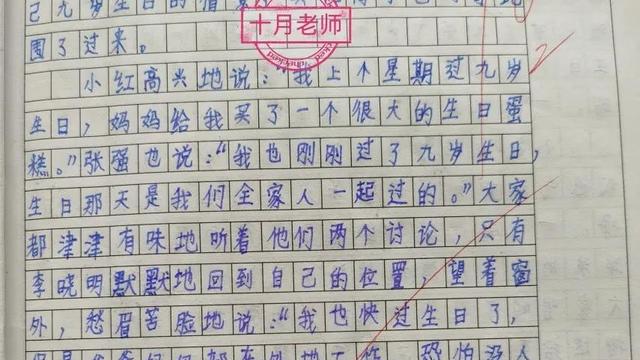 己九岁生日的情
十月老师
围了过来。
小红高兴地说：“我上个星期过九岁
生日，妈妈给我买了一个很大的生日蛋
糕。”张强也说：“我也刚刚过了九岁生日，
生日那天是我们全家人一起过的。”大家
都津津有味地听着他们两个讨论，只有
李晓明默默地回到自己的位置，望着窗
外，愁眉苦脸地说：“我也快过生日了，